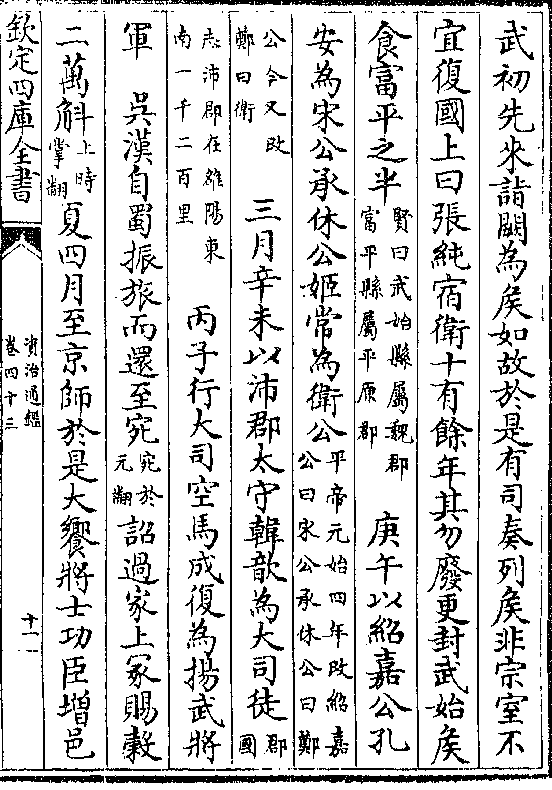 武初先來詣闕為矦如故於是有司奏列矦非宗室不
宜復國上曰張純宿衛十有餘年其勿廢更封武始矦
食富平之半賢曰武始縣屬魏郡富平縣屬平原郡　庚午以紹嘉公孔
安為宋公承休公姬常為衛公平帝元始四年改紹嘉公曰宋公承休公曰鄭
公今又改鄭曰衛　三月辛未以沛郡太守韓歆為大司徒郡國
志沛郡在雒陽東南一千二百里　丙子行大司空馬成復為揚武將
軍　吳漢自蜀振旅而還至宛宛於元翻詔過家上冢賜穀
二萬斛上時掌翻夏四月至京師於是大饗將士功臣增邑
欽定四庫全書
資治通鑑
卷四十三
十一